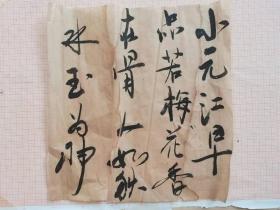 小元江
品若梅花香
在骨人如秋
水玉为神